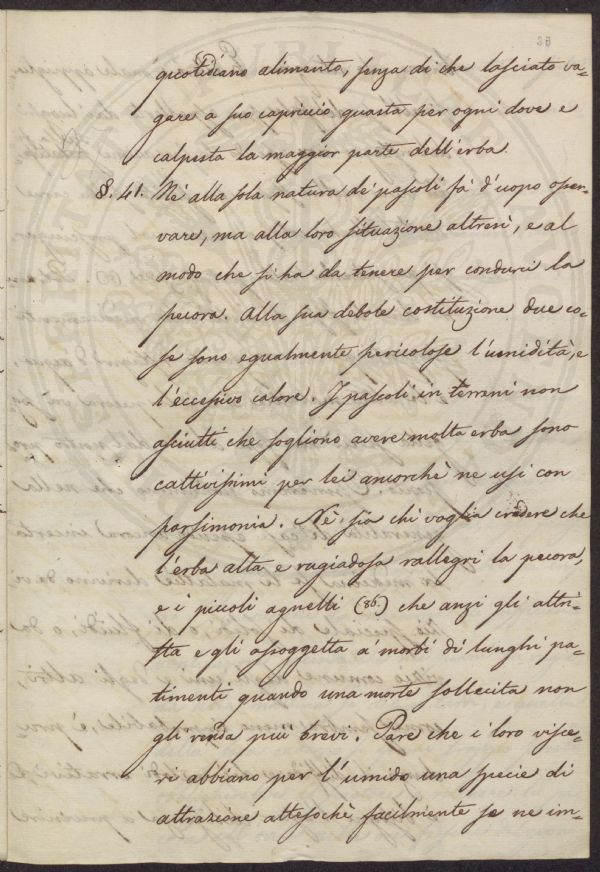 38
quotidiano alimento, senza di che lasciato va-
gare a suo capriccio guasta per ogni dove e
calpesta la maggior parte dell'erba.
§. 41. Nè alla sola natura de' pascoli fà d'uopo oser-
vare, ma alla loro situazione altresì, e al
modo che si ha da tenere per condurci la
pecora. Alla sua debole costituzione due co-
se sono egualmente pericolose l'umidità, e
l'eccessivo calore. I pascoli in terreni non
asciutti che sogliono avere molta erba sono
cattivissimi per lei ancorchè ne usi con
parsimonia. Nè sia chi voglia credere che
l'erba alta e rugiadosa rallegri la pecora,
e i piccoli agnelli (86.) che anzi gli attri-
sta e gli assoggetta a' morbi di lunghi pa-
timenti quando una morte sollecita non
gli renda più brevi. Pare che i loro visce-
ri abbiano per l'umido una specie di
attrazione attesochè facilmente se ne im-